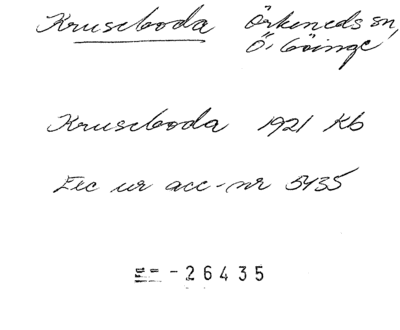 Kruseboda Örkeneds sn,
Ö. Göinge
Kruseboda 1921 Kb
Exc ur acc-nr 5435
-26435